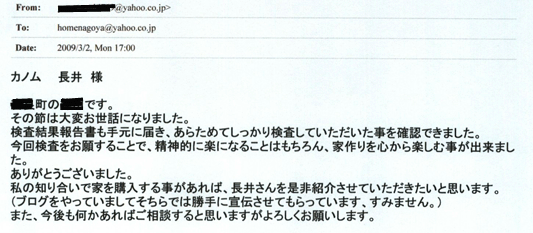 From: @yahoo.co.jp>
To: homenagoya@yahoo.co.jp
Date: 2009/3/2, Mon 17:00
カノム 長井 様
町の です。
その節は大変お世話になりました。
検査結果報告書も手元に届き、あらためてしっかり検査していただいた事を確認できました。
今回検査をお願することで、精神的に楽になることはもちろん、家作りを心から楽しむ事が出来まし
た。
ありがとうございました。
私の知り合いで家を購入する事があれば、長井さんを是非紹介させていただきたいと思います。
(ブログをやっていましてそちらでは勝手に宣伝させてもらっています、すみません。)
また、今後も何かあればご相談すると思いますがよろしくお願いします。